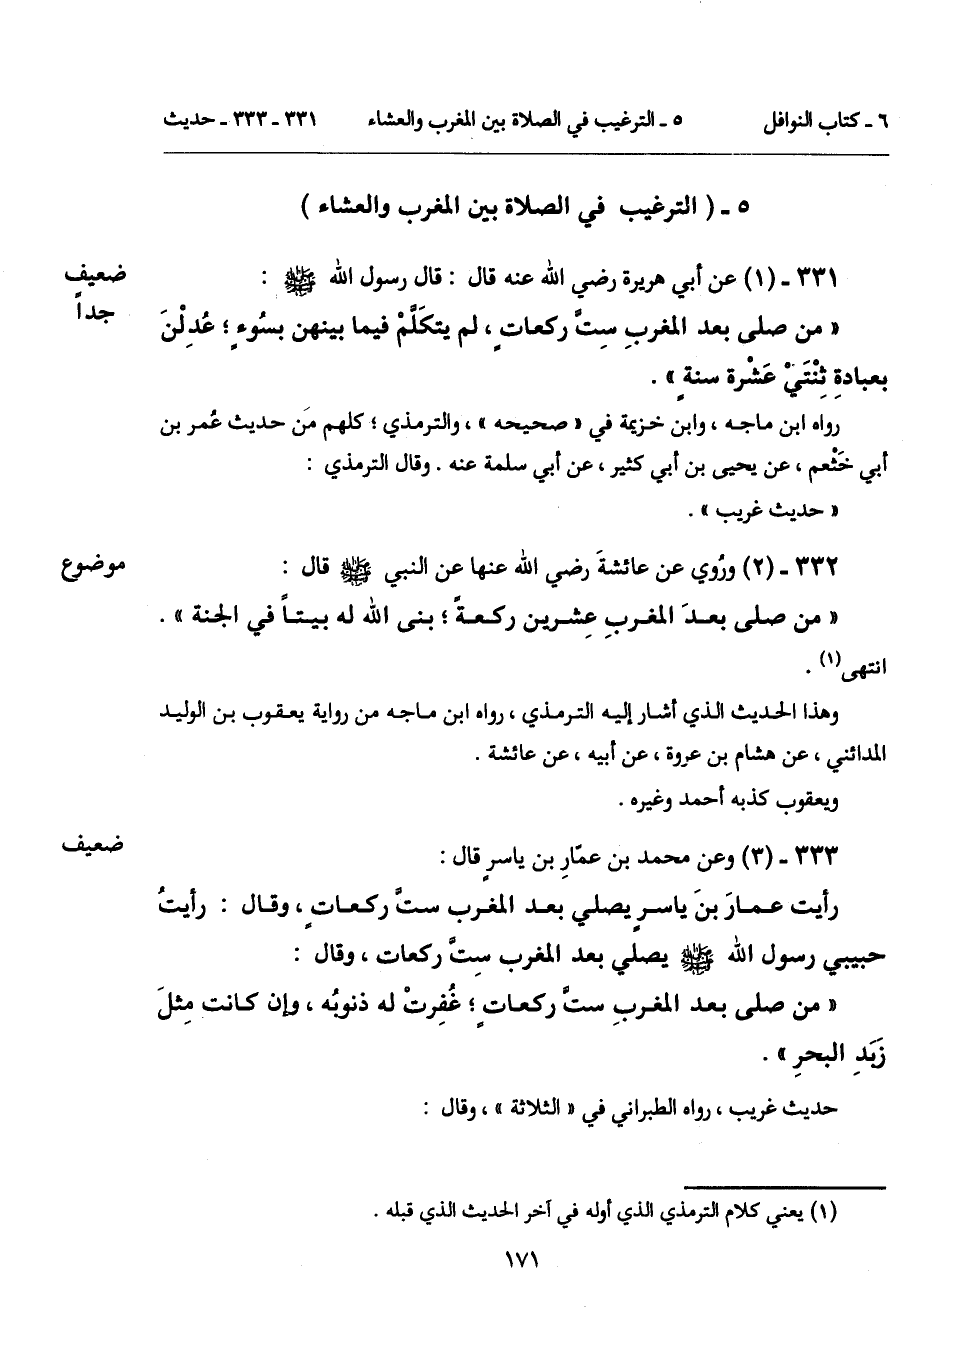 ٦ ـ كتاب النوافل ٥ ـ الترغيب في الصلاة بين المغرب والعشاء ٣٣١ ـ ٣٣٣ ـ حديث
٥ ـ ( الترغيب في الصلاة بين المغرب والعشاء )
٣٣١ ـ (١) عن أبي هريرة رضي الله عنه قال : قال رسول الله ﷺ :
ضعيف
جداً
« من صلى بعد المغربِ ستَّ ركعاتٍ ، لم يتكَلَّمْ فيما بينهن بسُوءٍ ؛ عُدِلْنَ
بعبادةِ ثِنْتَيْ عَشْرة سنةٍ » .
رواه ابن ماجه ، وابن خزيمة في « صحيحه » ، والترمذي ؛ كلهم مَن حديث عُمر بن
أبي خَثْعم ، عن يحيى بن أبي كثير ، عن أبي سلمة عنه . وقال الترمذي :
« حديث غريب » .
٣٣٢ ـ (٢) ورُوي عن عائشةَ رضي الله عنها عن النبي ﷺ قال :
موضوع
« من صلى بعدَ المغربِ عِشرين ركعةً ؛ بنى الله له بيتاً في الجنة » .
انتهى(١) .
وهذا الحديث الذي أشار إليه الترمذي ، رواه ابن ماجه من رواية يعقوب بن الوليد
المدائني ، عن هشام بن عروة ، عن أبيه ، عن عائشة .
ويعقوب كذبه أحمد وغيره .
٣٣٣ ـ (٣) وعن محمد بن عمّارِ بن ياسرٍ قال :
ضعيف
رأيت عمارَ بنَ ياسرٍ يصلي بعد المغرب ستَّ ركعاتٍ ، وقال : رأيتُ
حبيبي رسول الله ﷺ يصلي بعد المغرب سِتَّ ركعات ، وقال :
« من صلى بعد المغربِ ستَّ ركعاتٍ ؛ غُفِرتْ له ذنوبُه ، وإن كانت مِثلَ
زَبَدِ البحرِ » .
حديث غريب ، رواه الطبراني في « الثلاثة » ، وقال :
(١) يعني كلام الترمذي الذي أوله في آخر الحديث الذي قبله .
١٧١